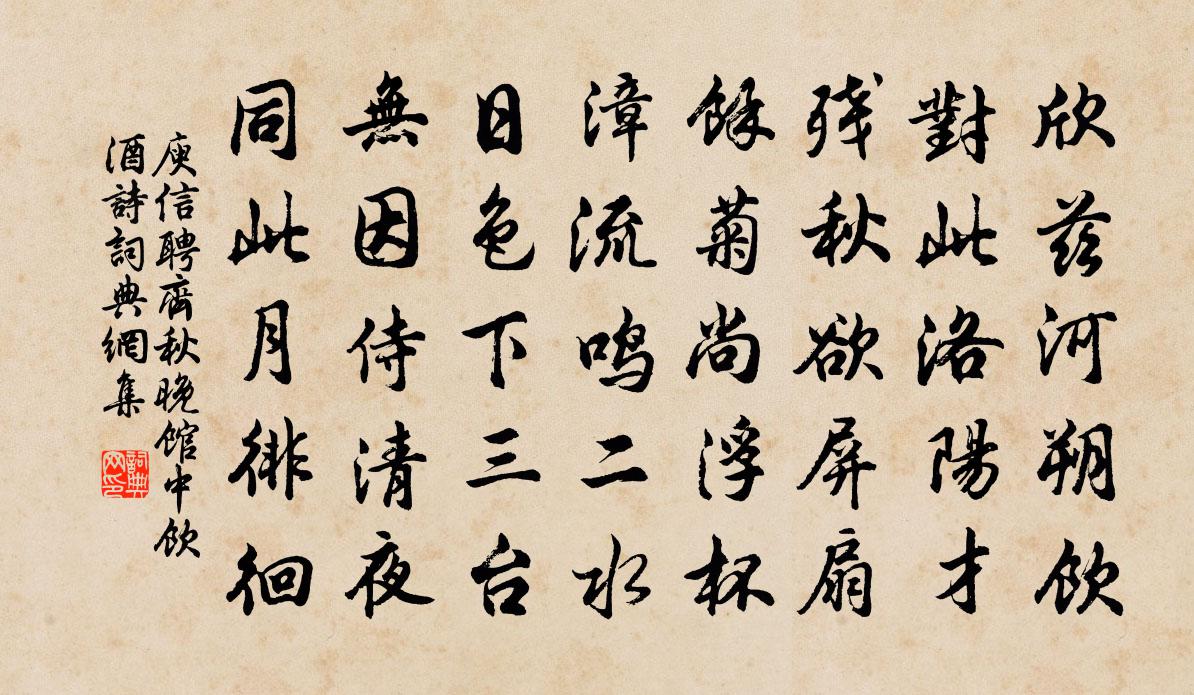 欣茲河朔飲
對此洛陽才
殘秋欲屏扇
餘菊尚浮杯
漳流鳴二水
日色下三台
無因侍清夜
同此月徘徊
庾信聘齊秋晚館中飲
酒詩詞典網集
詞典
网印